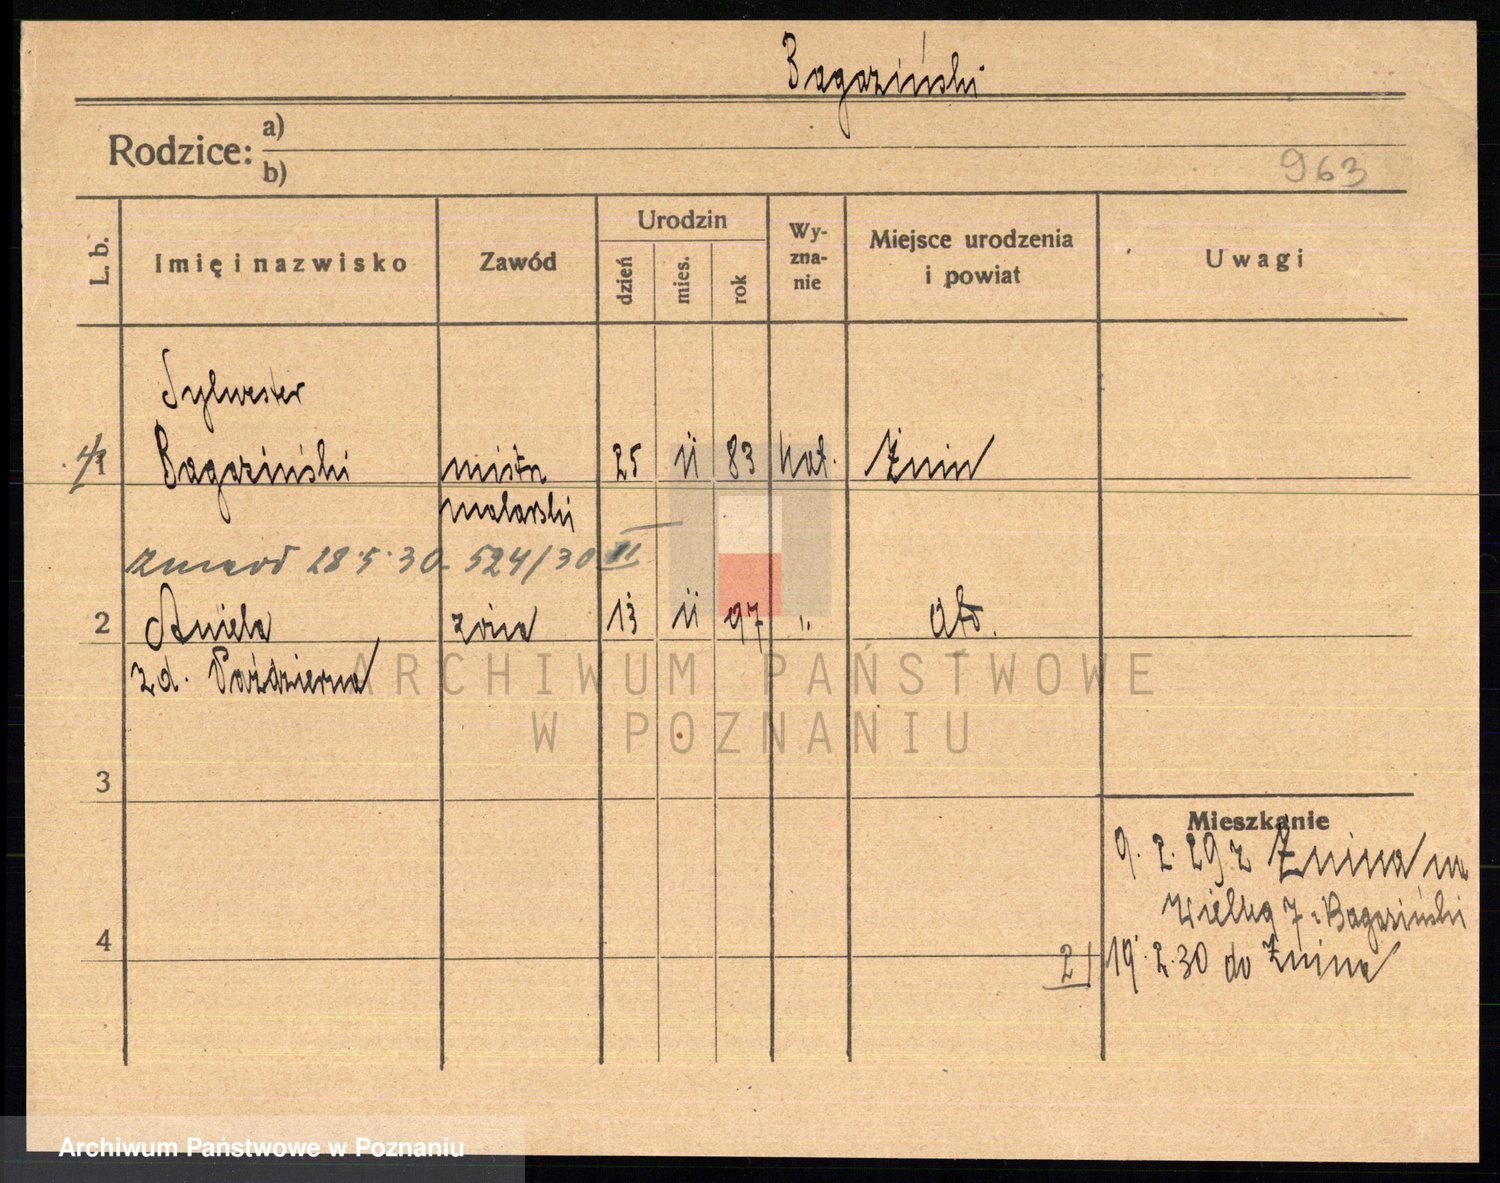 Bagaziński
Rodzice: a)
b)
963
L. b. Imię i nazwisko Zawód Urodzin dzień mies. rok Wyznanie Miejsce urodzenia i powiat Uwagi
Sylwester
1 Bagaziński mistrz 25 11 83 kat. Żnin
malarski
zmarł 28.5.30 524/30 II
2 Aniela żona 13 11 97 "
zd. Październa
ARCHIWUM PAŃSTWOWE
W POZNANIU
3
Mieszkanie
9. 2. 29 z Żnina
7 Bagaziński
4
2/ 19. 2. 30 do Żnina
Archiwum Państwowe w Poznaniu